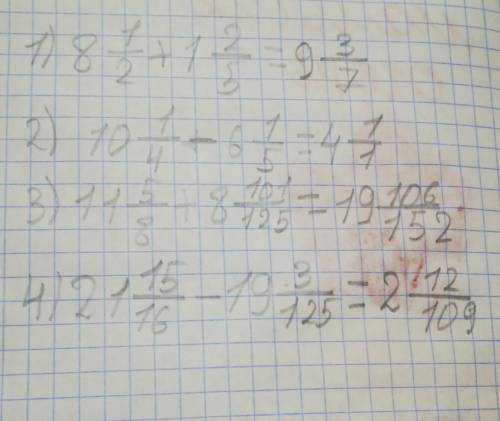 1) 8 1/2 + 1 2/5 = 9 3/7
2) 10 1/4 - 6 1/5 = 4 1/1
3) 11 5/8 + 8 101/125 = 19 106/152
4) 21 15/16 - 19 3/125 = 2 12/109